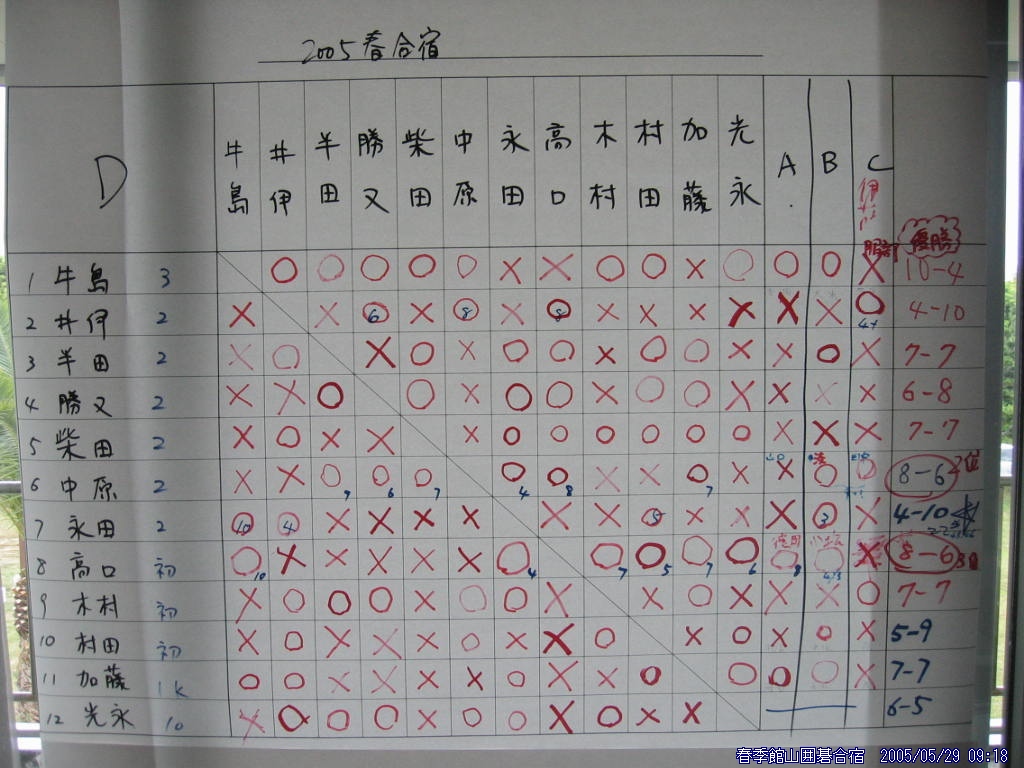 2005春合宿
D 牛島 井伊 半田 勝又 柴田 中原 永田 高口 木村 村田 加藤 光永 A. B C
優勝
1 牛島 3 ○ ○ ○ ○ ○ × × ○ ○ × ○ ○ ○ × 10-4
2 井伊 2 × × ⑥ × ⑧ × ⑧ × × × × × × ○ 4-10
3 半田 2 × ○ × ○ × ○ ○ × ○ ○ × × ○ × 7-7
4 勝又 2 × × ○ ○ × ○ ○ × ○ ○ × × × × 6-8
5 柴田 2 × ○ × × × ○ ○ ○ ○ ○ ○ × × × 7-7
6 中原 2 × × ○7 ○6 ○7 ○4 ○8 × × ○7 × × ○ ○ 8-6 2位
7 永田 2 ⑩ ④ × × × × × × ⑤ × × × ③ × 4-10
8 高口 初 ○10 × × × × × ○4 ○7 ○5 ○7 ○6 ○8 ○ × 8-6 3位
9 木村 初 × ○ ○ ○ × ○ ○ × × ○ × × × ○ 7-7
10 村田 初 × ○ × × × ○ × × ○ × ○ × ○ × 5-9
11 加藤 1k ○ ○ × × × × ○ × × ○ ○ ○ ○ × 7-7
12 光永 10 × ○ ○ ○ × ○ ○ × ○ × × 6-5
春季館山囲碁合宿 2005/05/29 09:18